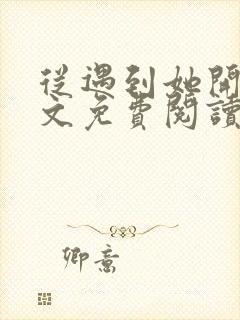 從遇到她開
文免費閱讀
卿意